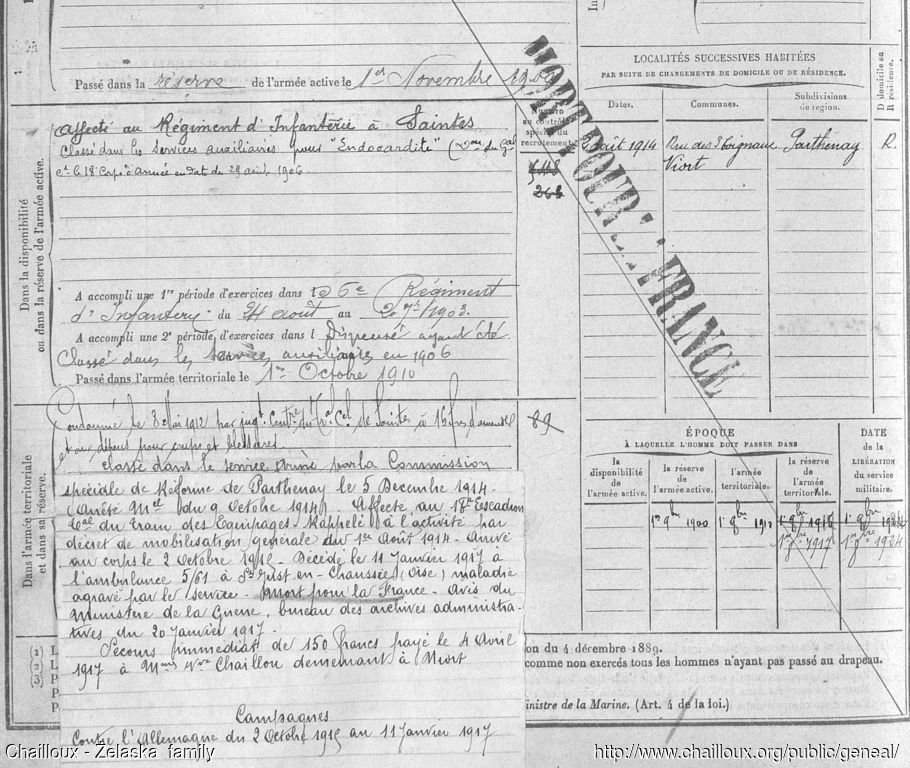 Passé dans la réserve de l'armée active le 1er Novembre 1900
Affecté au Régiment d'Infanterie à Saintes
Classé dans les services auxiliaires pour "Endocardite" (
le 18e Corps d'Armée en date du 28 1906.
Dans la disponibilité
ou dans la réserve de l'armée active.
A accompli une 1re période d'exercices dans le 6e Régiment
d'Infanterie du 24 août au 20 7bre 1903.
A accompli une 2e période d'exercices dans l Dispensé ayant été
Classé dans les services auxiliaires en 1906
Passé dans l'armée territoriale le 1er Octobre 1910
Numéro
au contrôle
spécial du
recrutement.
268
MORT POUR LA FRANCE
LOCALITÉS SUCCESSIVES HABITÉES
PAR SUITE DE CHANGEMENTS DE DOMICILE OU DE RÉSIDENCE.
Dates.
Communes.
Subdivisions
de région.
D domicile ou
R résidence.
août 1914 Rue des Niort Parthenay R.
Dans l'armée territoriale
et dans sa réserve.
Condamné le 8 Mai 1912 par jugt Contre du Cel de Saintes à 16 frs d'amende
et aux dépens pour coups et blessures.
89
Classé dans le service armé par la Commission
spéciale de Réforme de Parthenay le 5 Décembre 1914.
(Arrêté Mel du 9 Octobre 1914). Affecté au 18e Escadron
Tal du Train des Equipages. Rappelé à l'activité par
décret de mobilisation générale du 1er Août 1914. Arrivé
au corps le 2 Octobre 1915. Décédé le 11 Janvier 1917 à
l'ambulance 5/61 à St Just-en-Chaussée (Oise) maladie
agravé par le service. Mort pour la France. Avis du
Ministère de la Guerre, bureau des archives administra-
tives du 20 Janvier 1917.
Secours immédiat de 150 francs payé le 4 Avril
1917 à Mme Vve Chaillou demeurant à Niort
Campagnes
Contre l'Allemagne du 2 Octobre 1915 au 11 Janvier 1917
ÉPOQUE
À LAQUELLE L'HOMME DOIT PASSER DANS
DATE
de la
LIBÉRATION
du service
militaire.
la
disponibilité
de l'armée active.
la réserve
de
l'armée active.
l'armée
territoriale.
la réserve
de l'armée
territoriale.
1er 9bre 1900 1er 8bre 1910 1er 8bre 1916 1er 8bre 1924
1917 1924
(1) L
(2) L
(3) P
P
P
on du 4 décembre 1889.
comme non exercés tous les hommes n'ayant pas passé au drapeau.
inistre de la Marine. (Art. 4 de la loi.)
Chailloux - Zelaska family
http://www.chailloux.org/public/geneal/